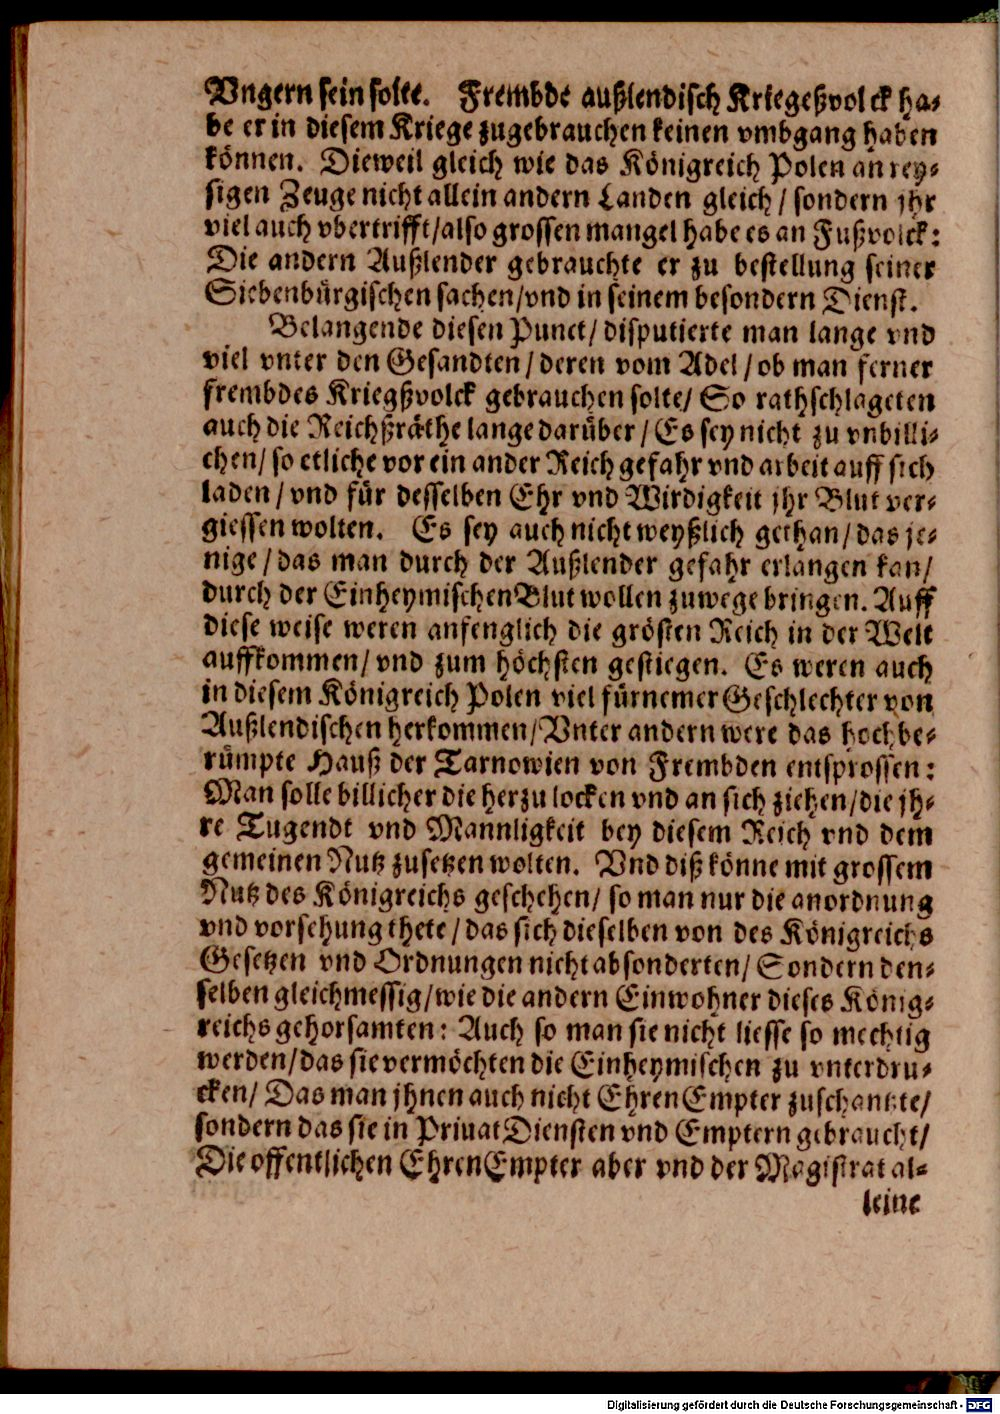 Vngern sein solte. Frembde außlendisch Kriegeßvolck ha-
be er in diesem Kriege zugebrauchen keinen vmbgang haben
können. Dieweil gleich wie das Königreich Polen an rey-
sigen Zeuge nicht allein andern Landen gleich / sondern jhr
viel auch vbertrifft/also grossen mangel habe es an Fußvolck:
Die andern Außlender gebrauchte er zu bestellung seiner
Siebenbürgischen sachen/vnd in seinem besondern Dienst.
Belangende diesen Punct/ disputierte man lange vnd
viel vnter den Gesandten / deren vom Adel / ob man ferner
frembdes Kriegßvolck gebrauchen solte/ So rathschlageten
auch die Reichßräthe lange darüber / Es sey nicht zu vnbilli-
chen/ so etliche vor ein ander Reich gefahr vnd arbeit auff sich
laden / vnd für desselben Ehr vnd Wirdigkeit jhr Blut ver-
giessen wolten. Es sey auch nicht weyßlich gethan / das je-
nige / das man durch der Außlender gefahr erlangen kan/
durch der Einheymischen Blut wollen zuwege bringen. Auff
diese weise weren anfenglich die grösten Reich in der Welt
auffkommen/ vnd zum höchsten gestiegen. Es weren auch
in diesem Königreich Polen viel fürnemer Geschlechter von
Außlendischen herkommen/Vnter andern were das hochbe-
rümpte Hauß der Tarnowien von Frembden entsprossen:
Man solle billicher die herzu locken vnd an sich ziehen/die jh-
re Tugendt vnd Mannligkeit bey diesem Reich vnd dem
gemeinen Nutz zusetzen wolten. Vnd diß könne mit grossem
Nutz des Königreichs geschehen/ so man nur die anordnung
vnd vorsehung thete / das sich dieselben von des Königreichs
Gesetzen vnd Ordnungen nicht absonderten/ Sondern den-
selben gleichmessig/wie die andern Einwohner dieses König-
reichs gehorsamten: Auch so man sie nicht liesse so mechtig
werden/das sie vermöchten die Einheymischen zu vnterdru-
cken/ Das man jhnen auch nicht EhrenEmpter zuschantzte/
sondern das sie in Priuat Diensten vnd Emptern gebraucht/
Die offentlichen EhrenEmpter aber vnd der Magistrat al-
leine
Digitalisierung gefördert durch die Deutsche Forschungsgemeinschaft - DFG